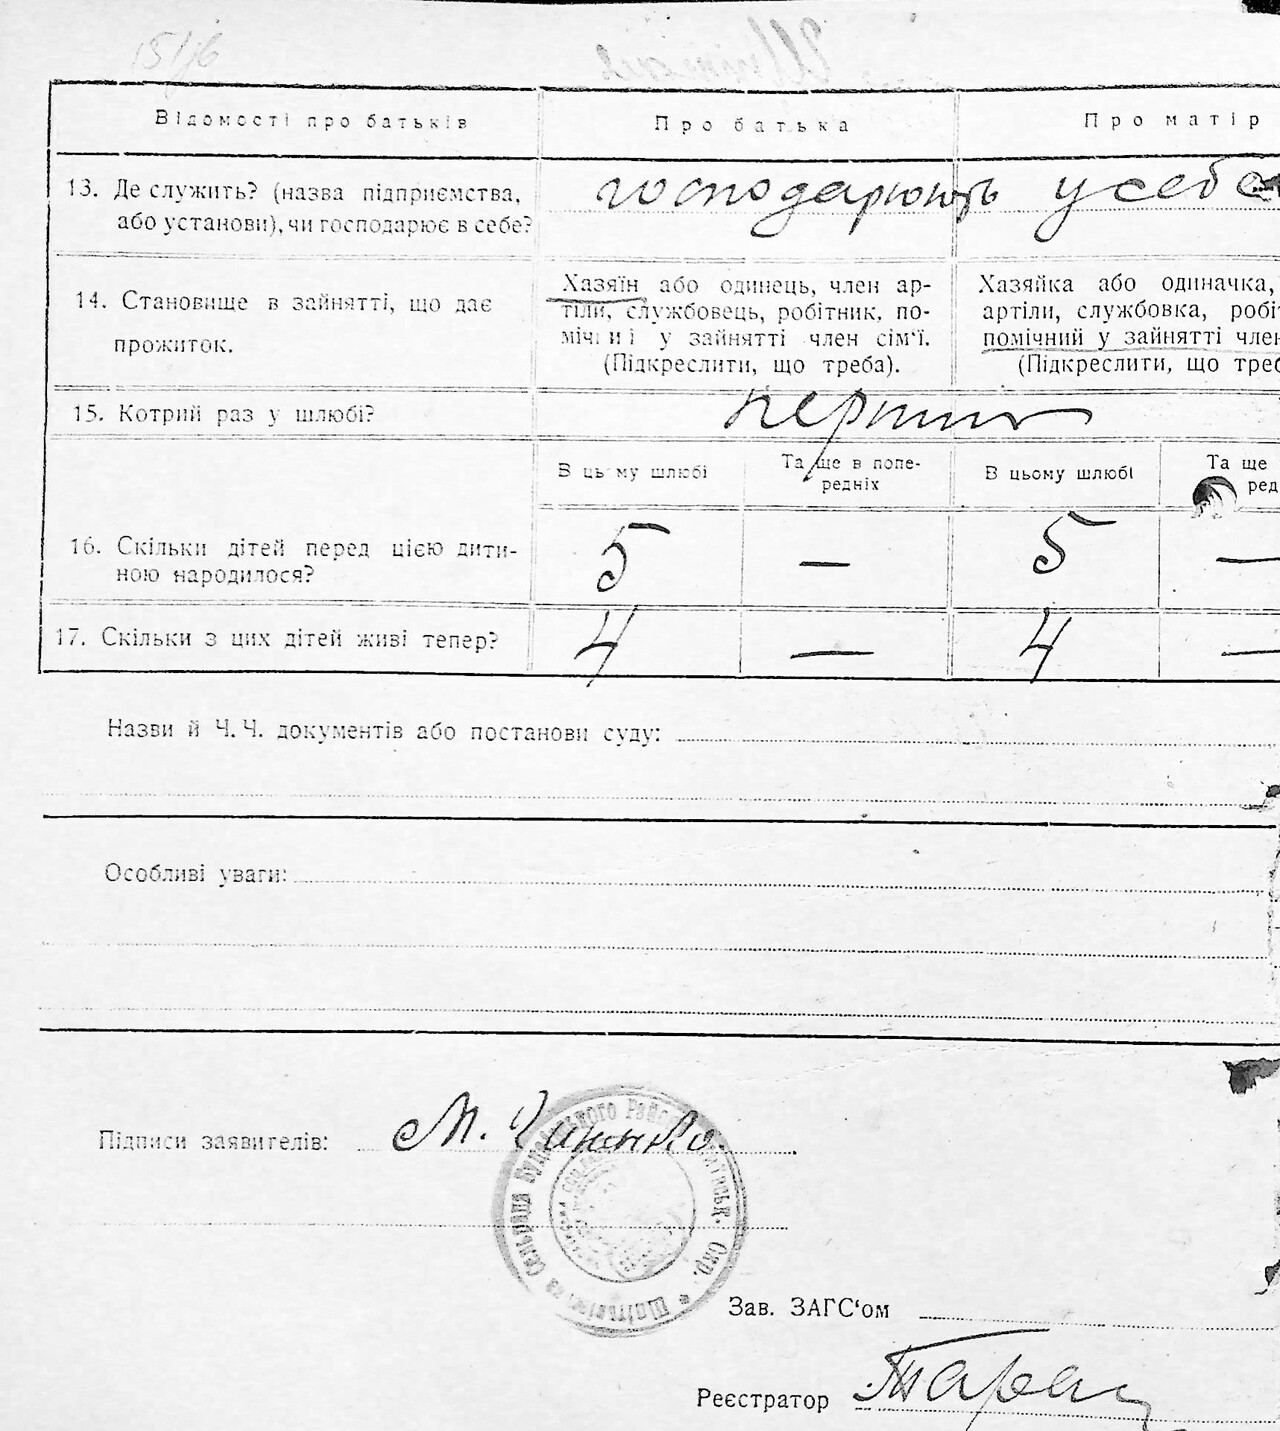 15/16
Відомості про батьків Про батька Про матір
13. Де служить? (назва підприємства, або установи), чи господарює в себе?
господарюють у себе
14. Становище в зайнятті, що дає
прожиток.
Хазяїн або одинець, член ар-
тіли, службовець, робітник, по-
мічний у зайнятті член сім'ї.
(Підкреслити, що треба).
Хазяйка або одиначка,
артіли, службовка, робі
помічний у зайнятті член
(Підкреслити, що треб
15. Котрий раз у шлюбі?
перший
В цьому шлюбі Та ще в попе-
редніх
В цьому шлюбі Та ще
ред
16. Скільки дітей перед цією дити-
ною народилося?
5 — 5 —
17. Скільки з цих дітей живі тепер? 4 — 4 —
Назви й Ч. Ч. документів або постанови суду:
Особливі уваги:
Підписи заявителів: М.
Зав. ЗАГС'ом
Реєстратор Таран